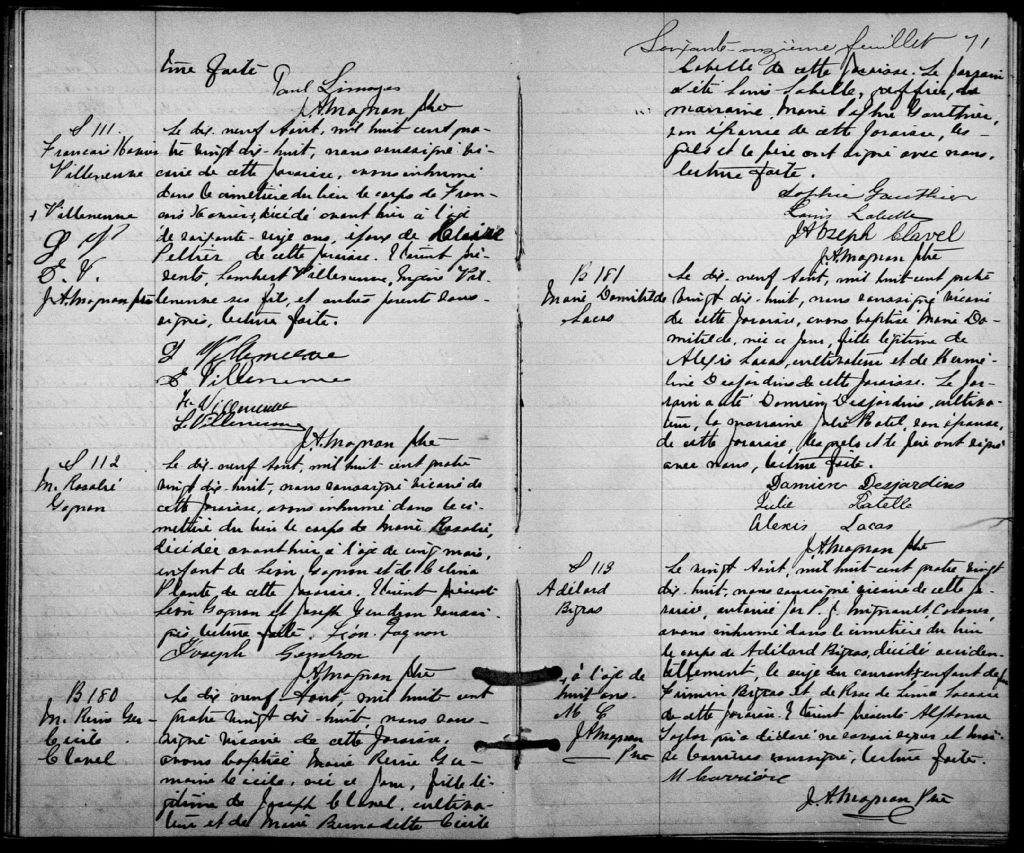 ture faite
Paul Limoges
J.A. Magnan ptre
S 111.
Francois Xavier
Villeneuve
+ Villeneuve
D. V.
J.A. Magnan ptre
Le dix-neuf Aout, mil huit cent qua-
tre vingt dix-huit, nous soussigné vi-
caire de cette paroisse, avons inhumé
dans le cimetière du lieu le corps de Fran-
çois Xavier, décédé avant hier à l'age
de soixante-seize ans, époux de
Peltier de cette paroisse. Etaient pré-
sents, Lambert Villeneuve, Vil-
leneuve ses fils, et autres parents sous-
signés, lecture faite.
L Villeneuve
E Villeneuve
H. Villeneuve
L Villeneuve
J.A. Magnan ptre
S 112
M. Rosalie
Gagnon
Le dix-neuf Aout, mil huit-cent quatre
vingt dix-huit, nous soussigné vicaire de
cette paroisse, avons inhumé dans le ci-
metière du lieu le corps de Marie Rosalie,
décédée avant hier à l'age de cinq mois,
enfant de Léon Gagnon et de Célina
Plante de cette paroisse. Etaient présents
Léon Gagnon et Joseph Gendron soussi-
gnés, lecture faite. Léon Gagnon
Joseph Gendron
J.A. Magnan ptre
B 180
M. Reine Ger-
Cécile
Clavel
Le dix neuf Aout, mil huit cent
quatre vingt dix-huit, nous sous-
signé vicaire de cette paroisse,
avons baptisé Marie Reine Ger-
maine Cécile, née ce jour, fille lé-
gitime de Joseph Clavel, cultiva-
teur et de Marie Bernadette Cécile
Soixante-onzième feuillet 71
Labelle de cette paroisse. Le parrain
a été Louis Labelle, greffier, la
marraine Marie Sophie Gauthier,
son épouse de cette paroisse, les-
quels et le père ont signé avec nous,
lecture faite.
Sophie Gauthier
Louis Labelle
Joseph Clavel
J.A. Magnan ptre
B 181
Marie Domitilde
Lacas
Le dix-neuf Aout, mil huit-cent quatre
vingt dix-huit, nous soussigné vicaire
de cette paroisse, avons baptisé Marie Do-
mitilde, née ce jour, fille légitime de
Alexis Lacas, cultivateur et de Hermé-
line Desjardins de cette paroisse. Le par-
rain a été Damien Desjardins, cultiva-
teur, la marraine Julie Ratel, son épouse,
de cette paroisse, lesquels et le père ont signé
avec nous, lecture faite.
Damien Desjardins
Julie Ratelle
Alexis Lacas
J.A. Magnan ptre
S 113
Adélard
Bigras
+ à l'age de
huit ans.
M C
J.A. Magnan
Ptre
Le vingt Aout, mil huit-cent quatre vingt
dix-huit, nous soussigné vicaire de cette pa-
roisse, autorisé par P. J. Mignault, Coroner,
avons inhumé dans le cimetière du lieu
le corps de Adélard Bigras, décédé acciden-
tellement, le seize du courant, enfant de feu
Firmin Bigras et de Rose de Lima
de cette paroisse. Etaient présents Alphonse
Taylor qui a déclaré ne savoir signer et
Carrières soussigné, lecture faite.
M Carrière
J.A. Magnan Ptre